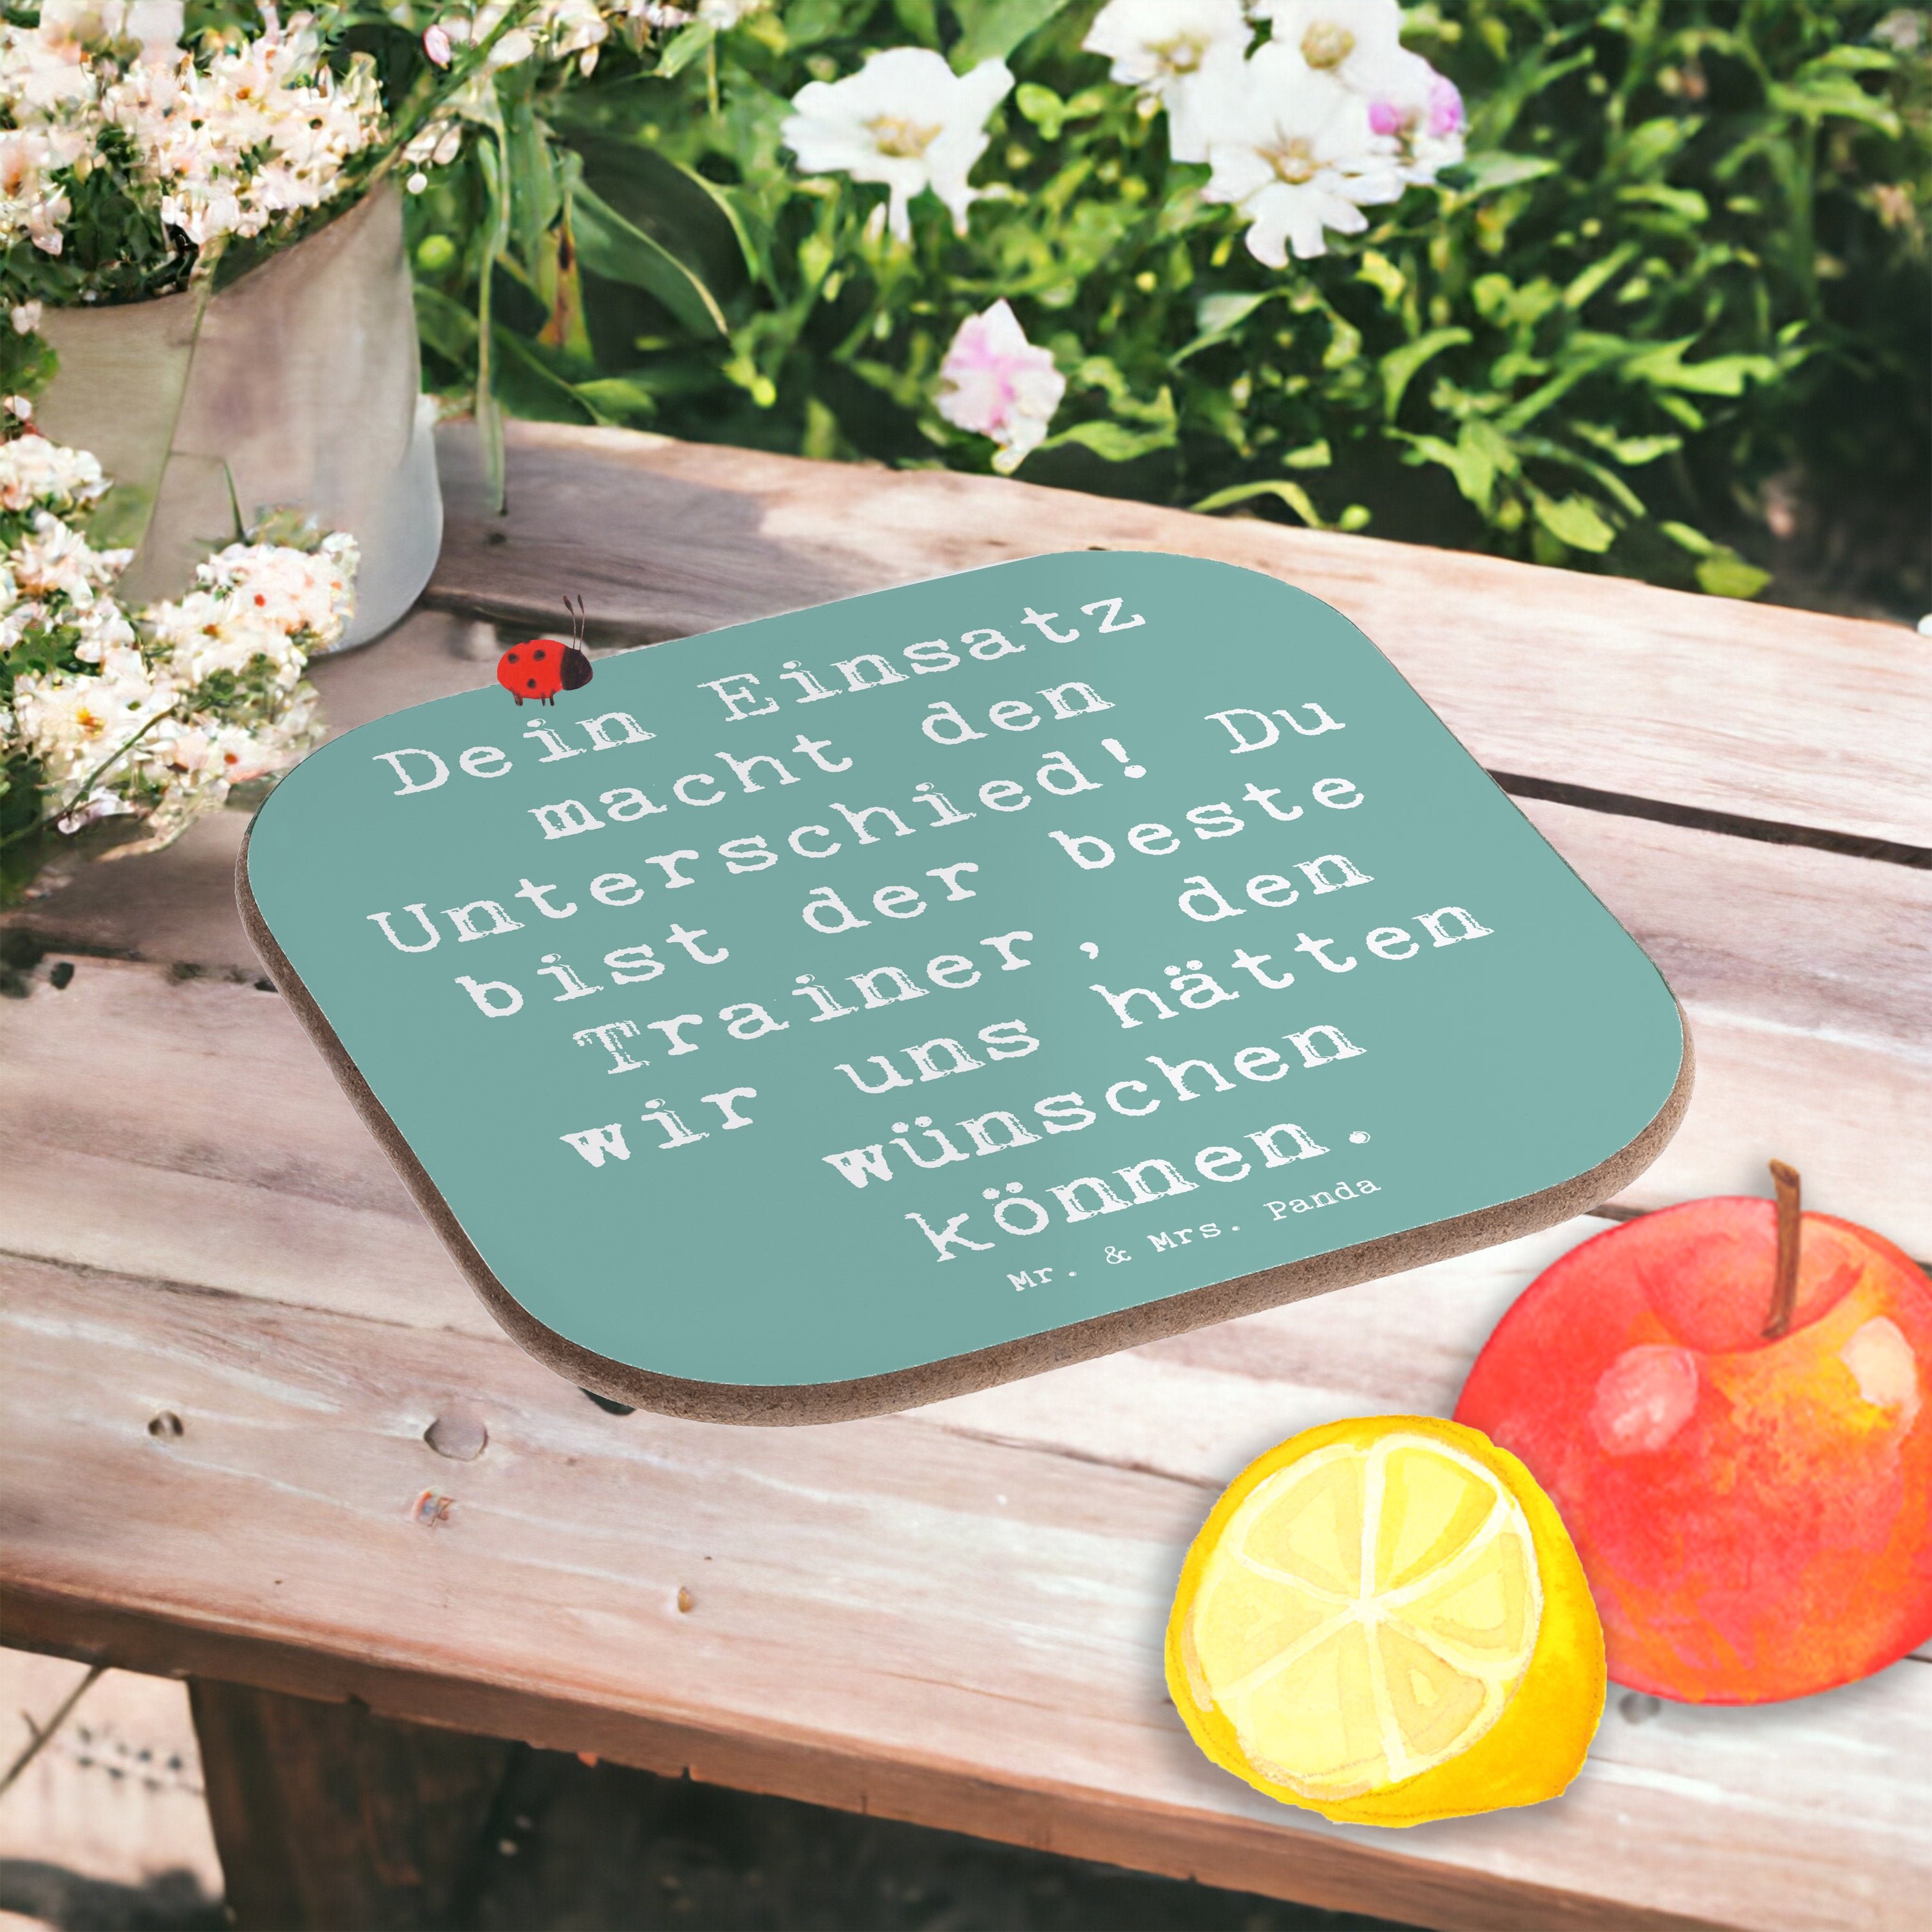 Dein Einsatz
macht den
Unterschied! Du
bist der beste
Trainer, den
wir uns hätten
wünschen
können.
Mr. & Mrs. Panda